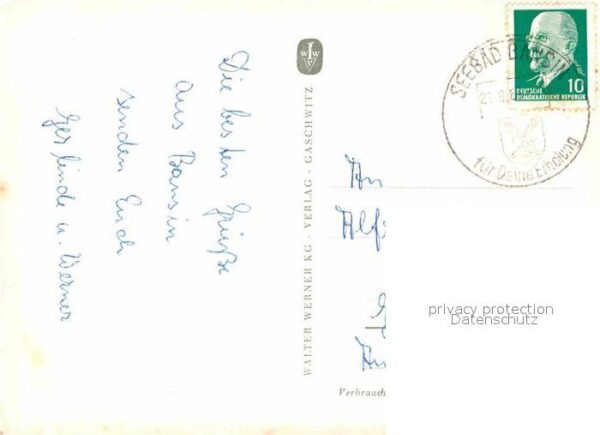 Die besten Grüße
aus Bansin
senden Euch
Gerlinde u. Werner
W
WALTER WERNER KG. · VERLAG · GASCHWITZ
SEEBAD BANSIN
für Deine Erholung
10
DEUTSCHE
DEMOKRATISCHE REPUBLIK
An
Alf
privacy protection
Datenschutz
Verbrauch